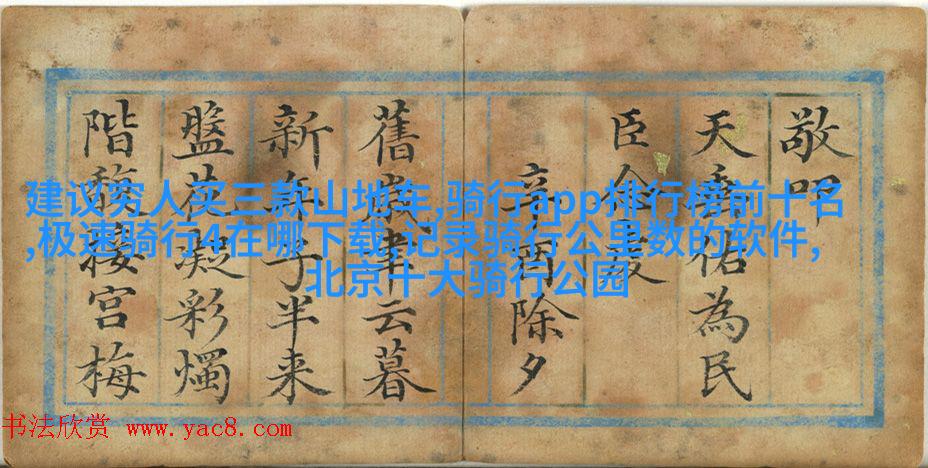 敬叩
天佑為民
臣
辛酉除夕
舊歲聿云暮
新年子半来
盤花凝彩燭
階馥接宮梅
建议穷人买三款山地车,骑行app排行榜前十名
,极速骑行4在哪下载,记录骑行公里数的软件,
北京十大骑行公园
书法欣赏 www.yac8.com